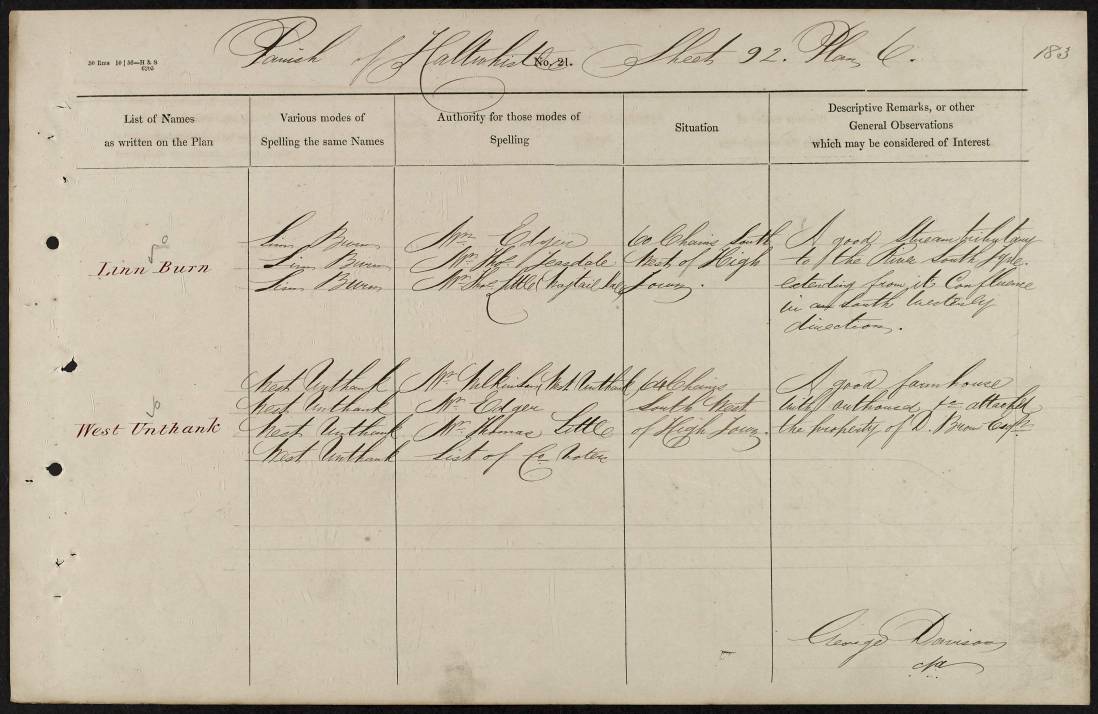 30 Rms 10 | 56—H & S
6205
Parish of Haltwhistle
No. 21.
Sheet 92. Plan 6.
183
List of Names
as written on the Plan
Various modes of
Spelling the same Names
Authority for those modes of
Spelling
Situation
Descriptive Remarks, or other
General Observations
which may be considered of Interest
Linn Burn
Linn Burn
Linn Burn
Linn Burn
Wm Edger
Mr. Thos. Teasdale
Mr. Thos Little Wagtail Hall
60 Chains South
West of High
Town.
A good Stream tributary
to the River South Tyne.
extending from its Confluence
in a South Westerly
direction.
West Unthank
West Unthank
West Unthank
West Unthank
West Unthank
Mr. Wilkinson, West Unthank
Mr. Edger
Mr. Thomas Little
List of Co. Voters
64 Chains
South West
of High Town.
A good farmhouse
with outhouses &c attached
the property of D. Brown Esqr.
George Davison
c/a